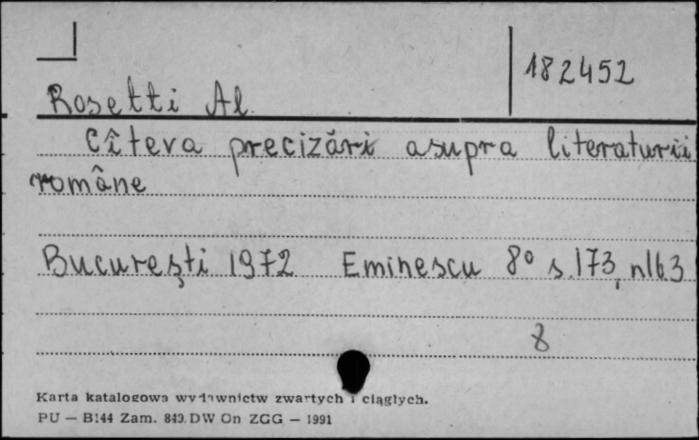 182452
Rosetti Al.
Cîteva precizări asupra literaturii
române
București 1972 Eminescu 8° s.173, nlb3
8
Karta katalogowa wydawnictw zwartych i ciągłych.
PU — B144 Zam. 849. DW On ZGG — 1991